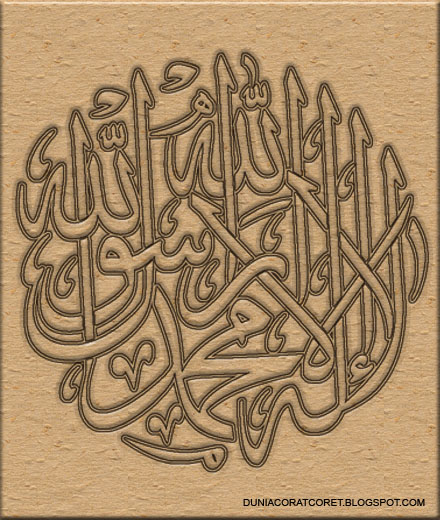 لا إله إلا الله محمد رسول الله
DUNIACORATCORET.BLOGSPOT.COM